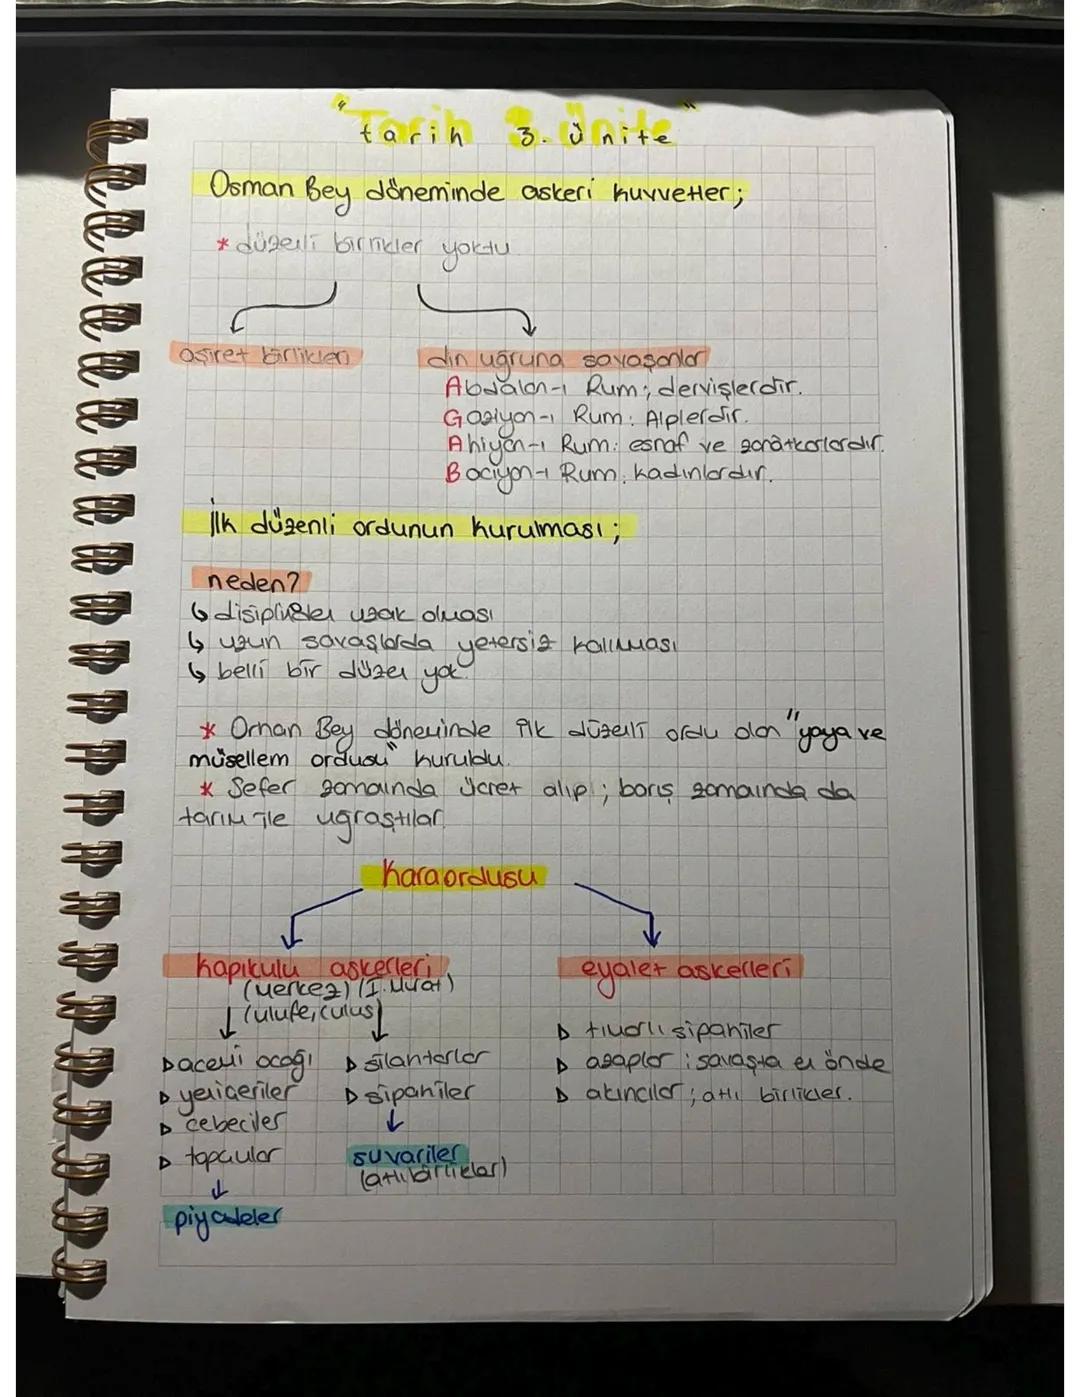 "tarih 3. ünite"
Osman Bey döneminde askeri kuvvetler;
* düzenli birlikler yoktu
aşiret birlikleri
din uğruna savaşanlar
Abdalan-ı Rum; dervişlerdir.
Gaziyan-ı Rum: Alplerdir.
Ahiyan-ı Rum: esnaf ve zanatkarlardır.
Baciyan-ı Rum: kadınlardır.
İlk düzenli ordunun kurulması;
neden?
↳ disiplinden uzak olması
↳ uzun savaşlarda yetersiz kalınması
↳ belli bir düzen yok.
* Orhan Bey döneminde ilk düzenli ordu olan "yaya ve
müsellem ordusu" kuruldu.
* Sefer zamanında ücret alıp; barış zamanında da
tarım ile uğraştılar
Kara ordusu
kapıkulu askerleri
(Merkez) (I. Murat)
(ulufe, culus)
▷ acemi ocağı
▷ yeniçeriler
▷ cebeciler
▷ topçular
piyadeler
▷ silahtarlar
▷ sipahiler
suvariler
(atlı birlikler)
eyalet askerleri
▷ tımarlı sipahiler
▷ azaplar; savaşta en önde
▷ akıncılar; atlı birlikler.